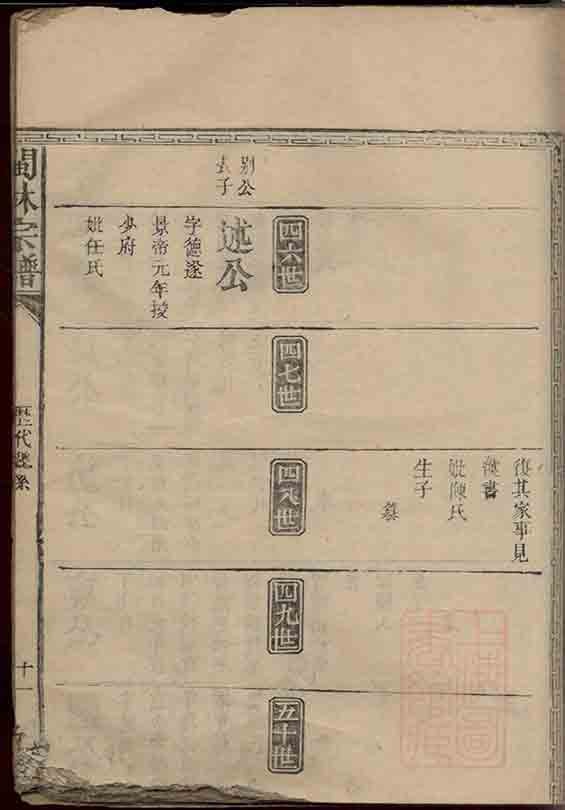 復其家事見
漢書
妣陳氏
生子
纂
四六世
四七世
四八世
四九世
五十世
別公
長子
述公
字德遂
景帝元年授
少府
妣任氏
林宗譜
歷代世系
十一
上海圖
書館藏